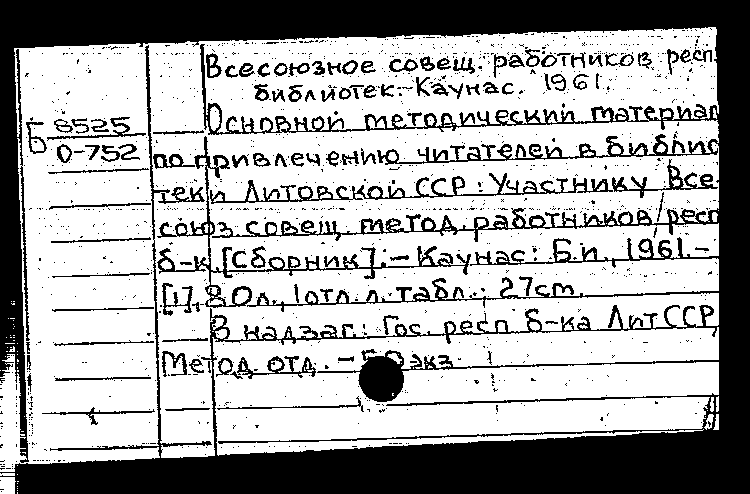 Всесоюзное совещ. работников респ.
библиотек. Каунас. 1961.
Б 8525
О-752
Основной методический материал
по привлечению читателей в библио
теки Литовской ССР: Участнику Все-
союз. совещ. метод. работников респ
б-к. [Сборник]. – Каунас: Б.и., 1961. –
[1], 80л., 1отл.л.табл.; 27cm.
В надзаг.: Гос. респ б-ка ЛитССР,
Метод. отд. – 50 экз
1